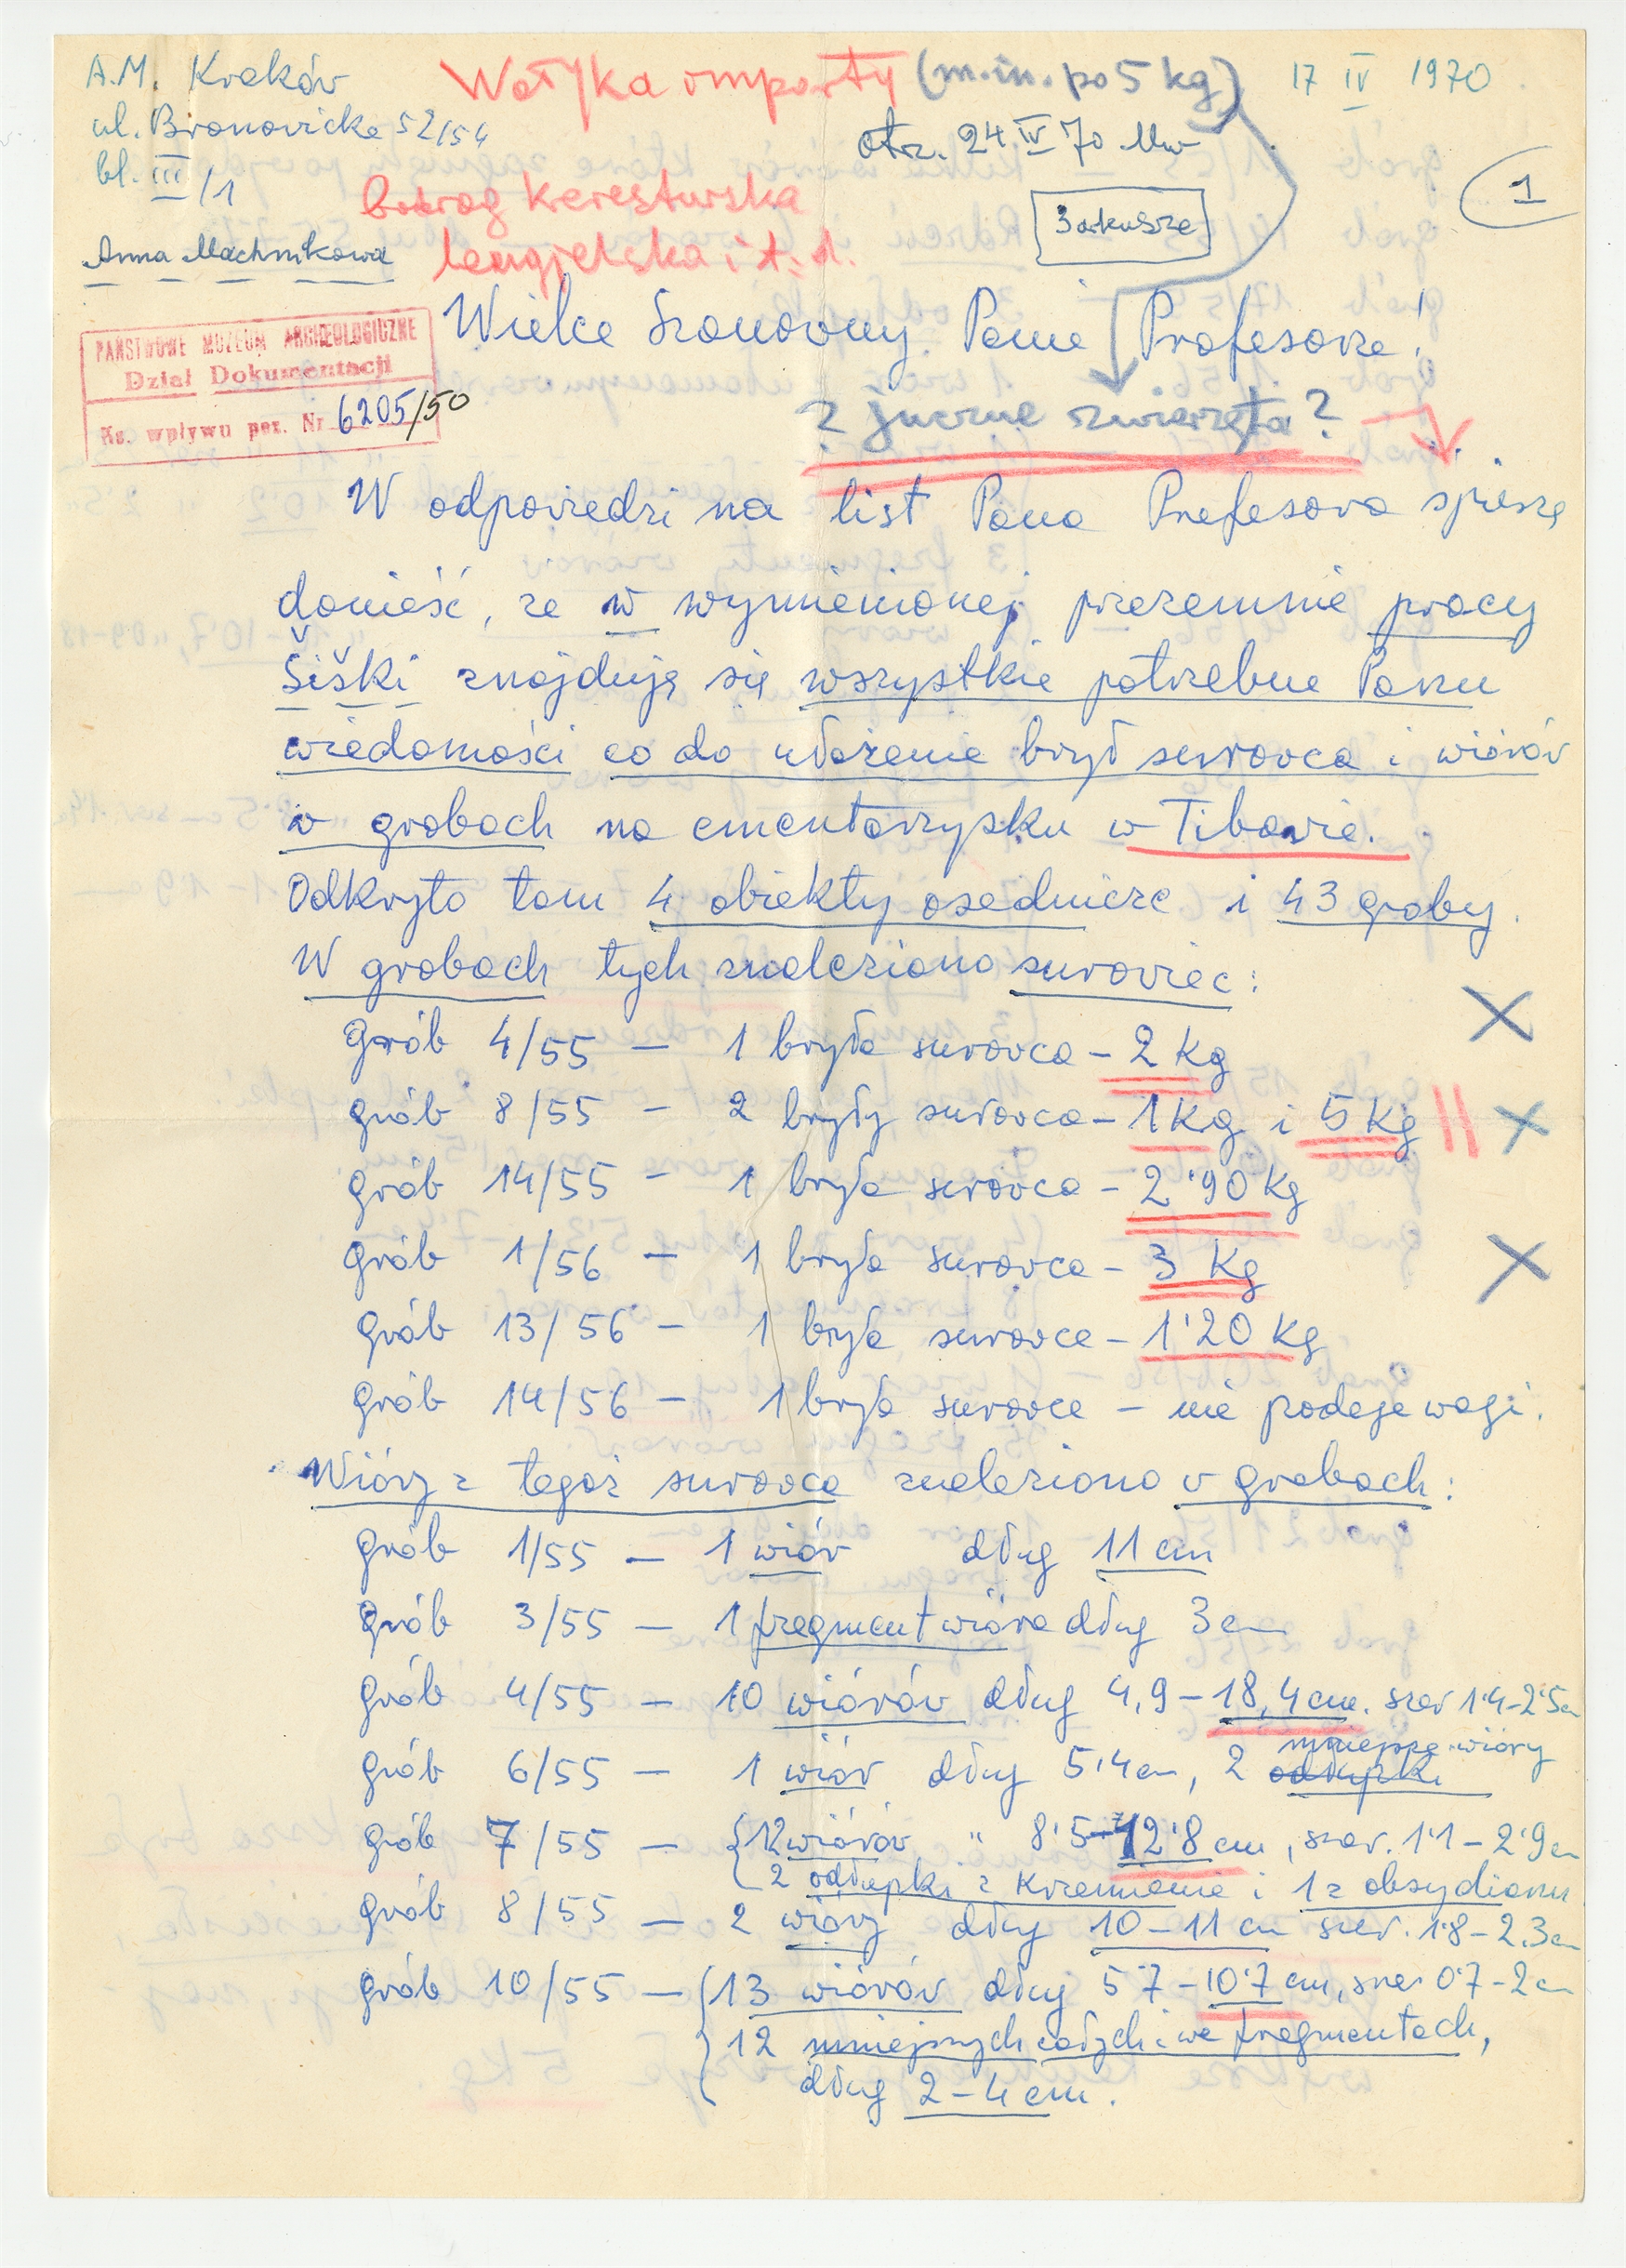 A.M. Kraków
ul. Bronowicka 52/54
bl. III/1
Anna Machnikowa
Wołyka importy (m.in. po 5 kg)
17 IV 1970
otrz. 24.IV 70
3 arkusze
1
Bodrog keresturska
lengielska i t. d.
PAŃSTWOWE MUZEUM ARCHEOLOGICZNE
Dział Dokumentacji
Ks. wpływu poz. Nr 6205/50
Wielce Szanowny Panie Profesorze!
? juczne zwierzęta ?
W odpowiedzi na list Pana Profesora spieszę
donieść, że w wymienionej przezemnie pracy
Šiški znajdują się wszystkie potrzebne Panu
wiadomości co do ułożenia brył surowca i wiórów
w grobach na cmentarzysku w Tibavie.
Odkryto tam 4 obiekty osadnicze i 43 groby.
W grobach tych znaleziono surowiec:
grób 4/55 — 1 bryła surowca – 2 kg
grób 8/55 — 2 bryły surowca – 1 kg i 5 kg
grób 14/55 — 1 bryła surowca – 2'90 kg
grób 1/56 — 1 bryła surowca – 3 kg
grób 13/56 — 1 bryła surowca – 1'20 kg
grób 14/56 — 1 bryła surowca – nie podaje wagi.
Wióry z tegoż surowca znaleziono w grobach:
grób 1/55 — 1 wiór dług 11 cm
grób 3/55 — 1 fragment wióra dług 3 cm
grób 4/55 — 10 wiórów dług 4,9 – 18,4 cm. szer 1'4–2'5 cm
grób 6/55 — 1 wiór dług 5'4 cm, 2 odłupki mniejsze wióry
grób 7/55 — 12 wiórów " 8'5–12'8 cm, szer. 1'1 – 2'9 cm
2 odłupki z krzemienia i 1 z obsydianu
grób 8/55 — 2 wióry dług 10 – 11 cm szer. 1'8 – 2.3 cm
grób 10/55 — 13 wiórów dług 5'7 – 10'7 cm, szer 0'7 – 2 cm
12 mniejszych całych i we fragmentach,
dług 2 – 4 cm.